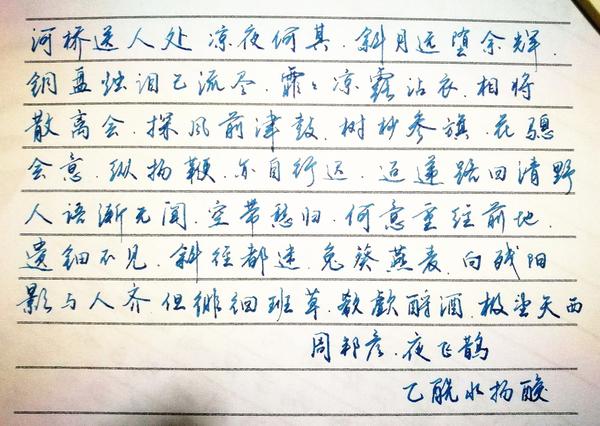 河桥送人处 凉夜何其.斜月远堕余辉.
铜盘烛泪已流尽.霏霏凉露沾衣.相将
散离会.探风前津鼓.树杪参旗.花骢
会意.纵扬鞭.亦自行迟.迢递路回清野
人语渐无闻.空带愁归.何意重经前地.
遗钿不见.斜径都迷.兔葵燕麦.向残阳
影与人齐.但徘徊班草.欷歔酹酒.极望天西
周邦彦.夜飞鹊
乙酰水杨酸